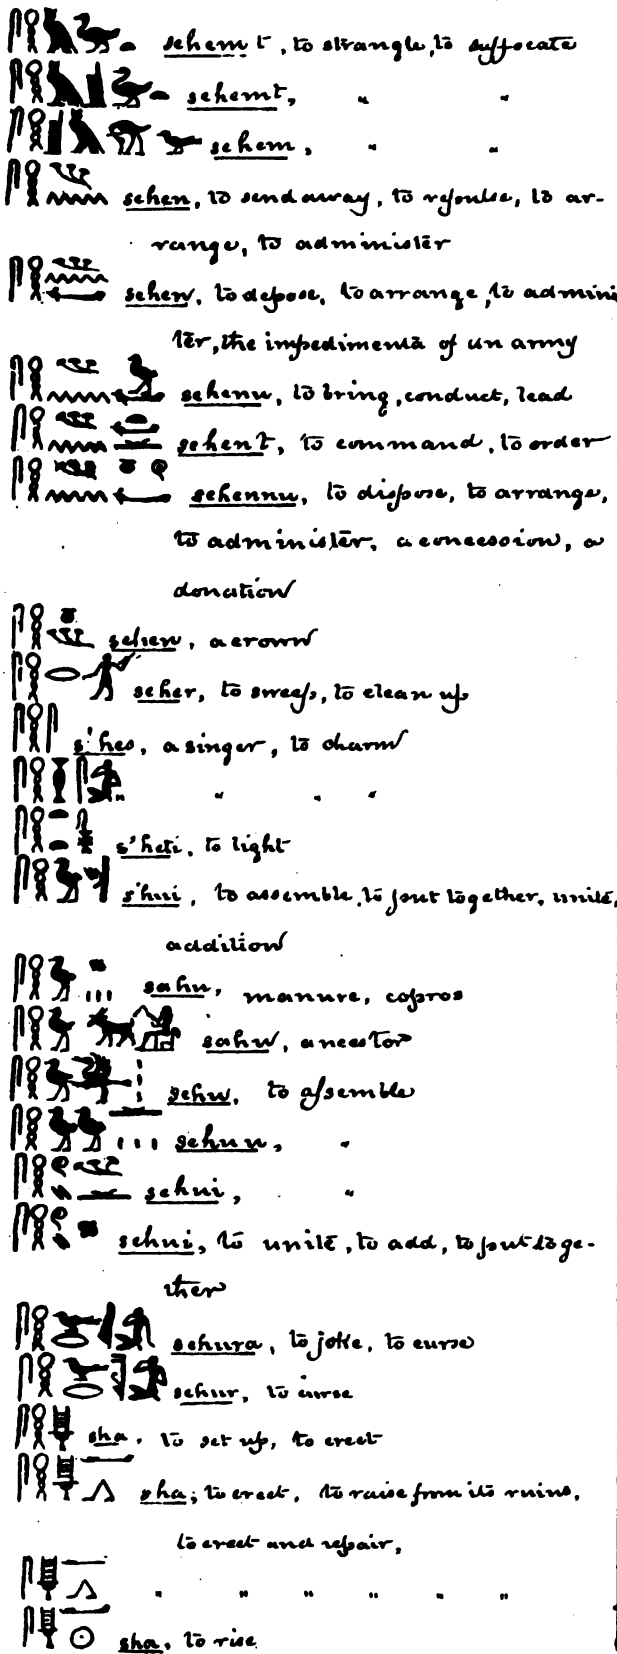 sehem t, to strangle, to suffocate
sehemt, " "
sehem, " "
sehen, to send away, to repulse, to ar-
range, to administer
sehen, to depose, to arrange, to adminis
ter, the impedimenta of an army
sehenu, to bring, conduct, lead
sehent, to command, to order
sehennu, to dispose, to arrange,
to administer, a concession, a
donation
sehen, a crown
seher, to sweep, to clean up
s'hes, a singer, to charm
" " "
s'heti, to light
s'hui, to assemble, to put together, unite,
addition
sahu, manure, copros
sahu, ancestor
sehu, to assemble
sehuu, "
sehui, "
sehui, to unite, to add, to put toge-
ther
sehura, to joke, to curse
sehur, to curse
sha, to set up, to erect
sha, to erect, to raise from its ruins,
to erect and repair,
" " " " " "
sha, to rise